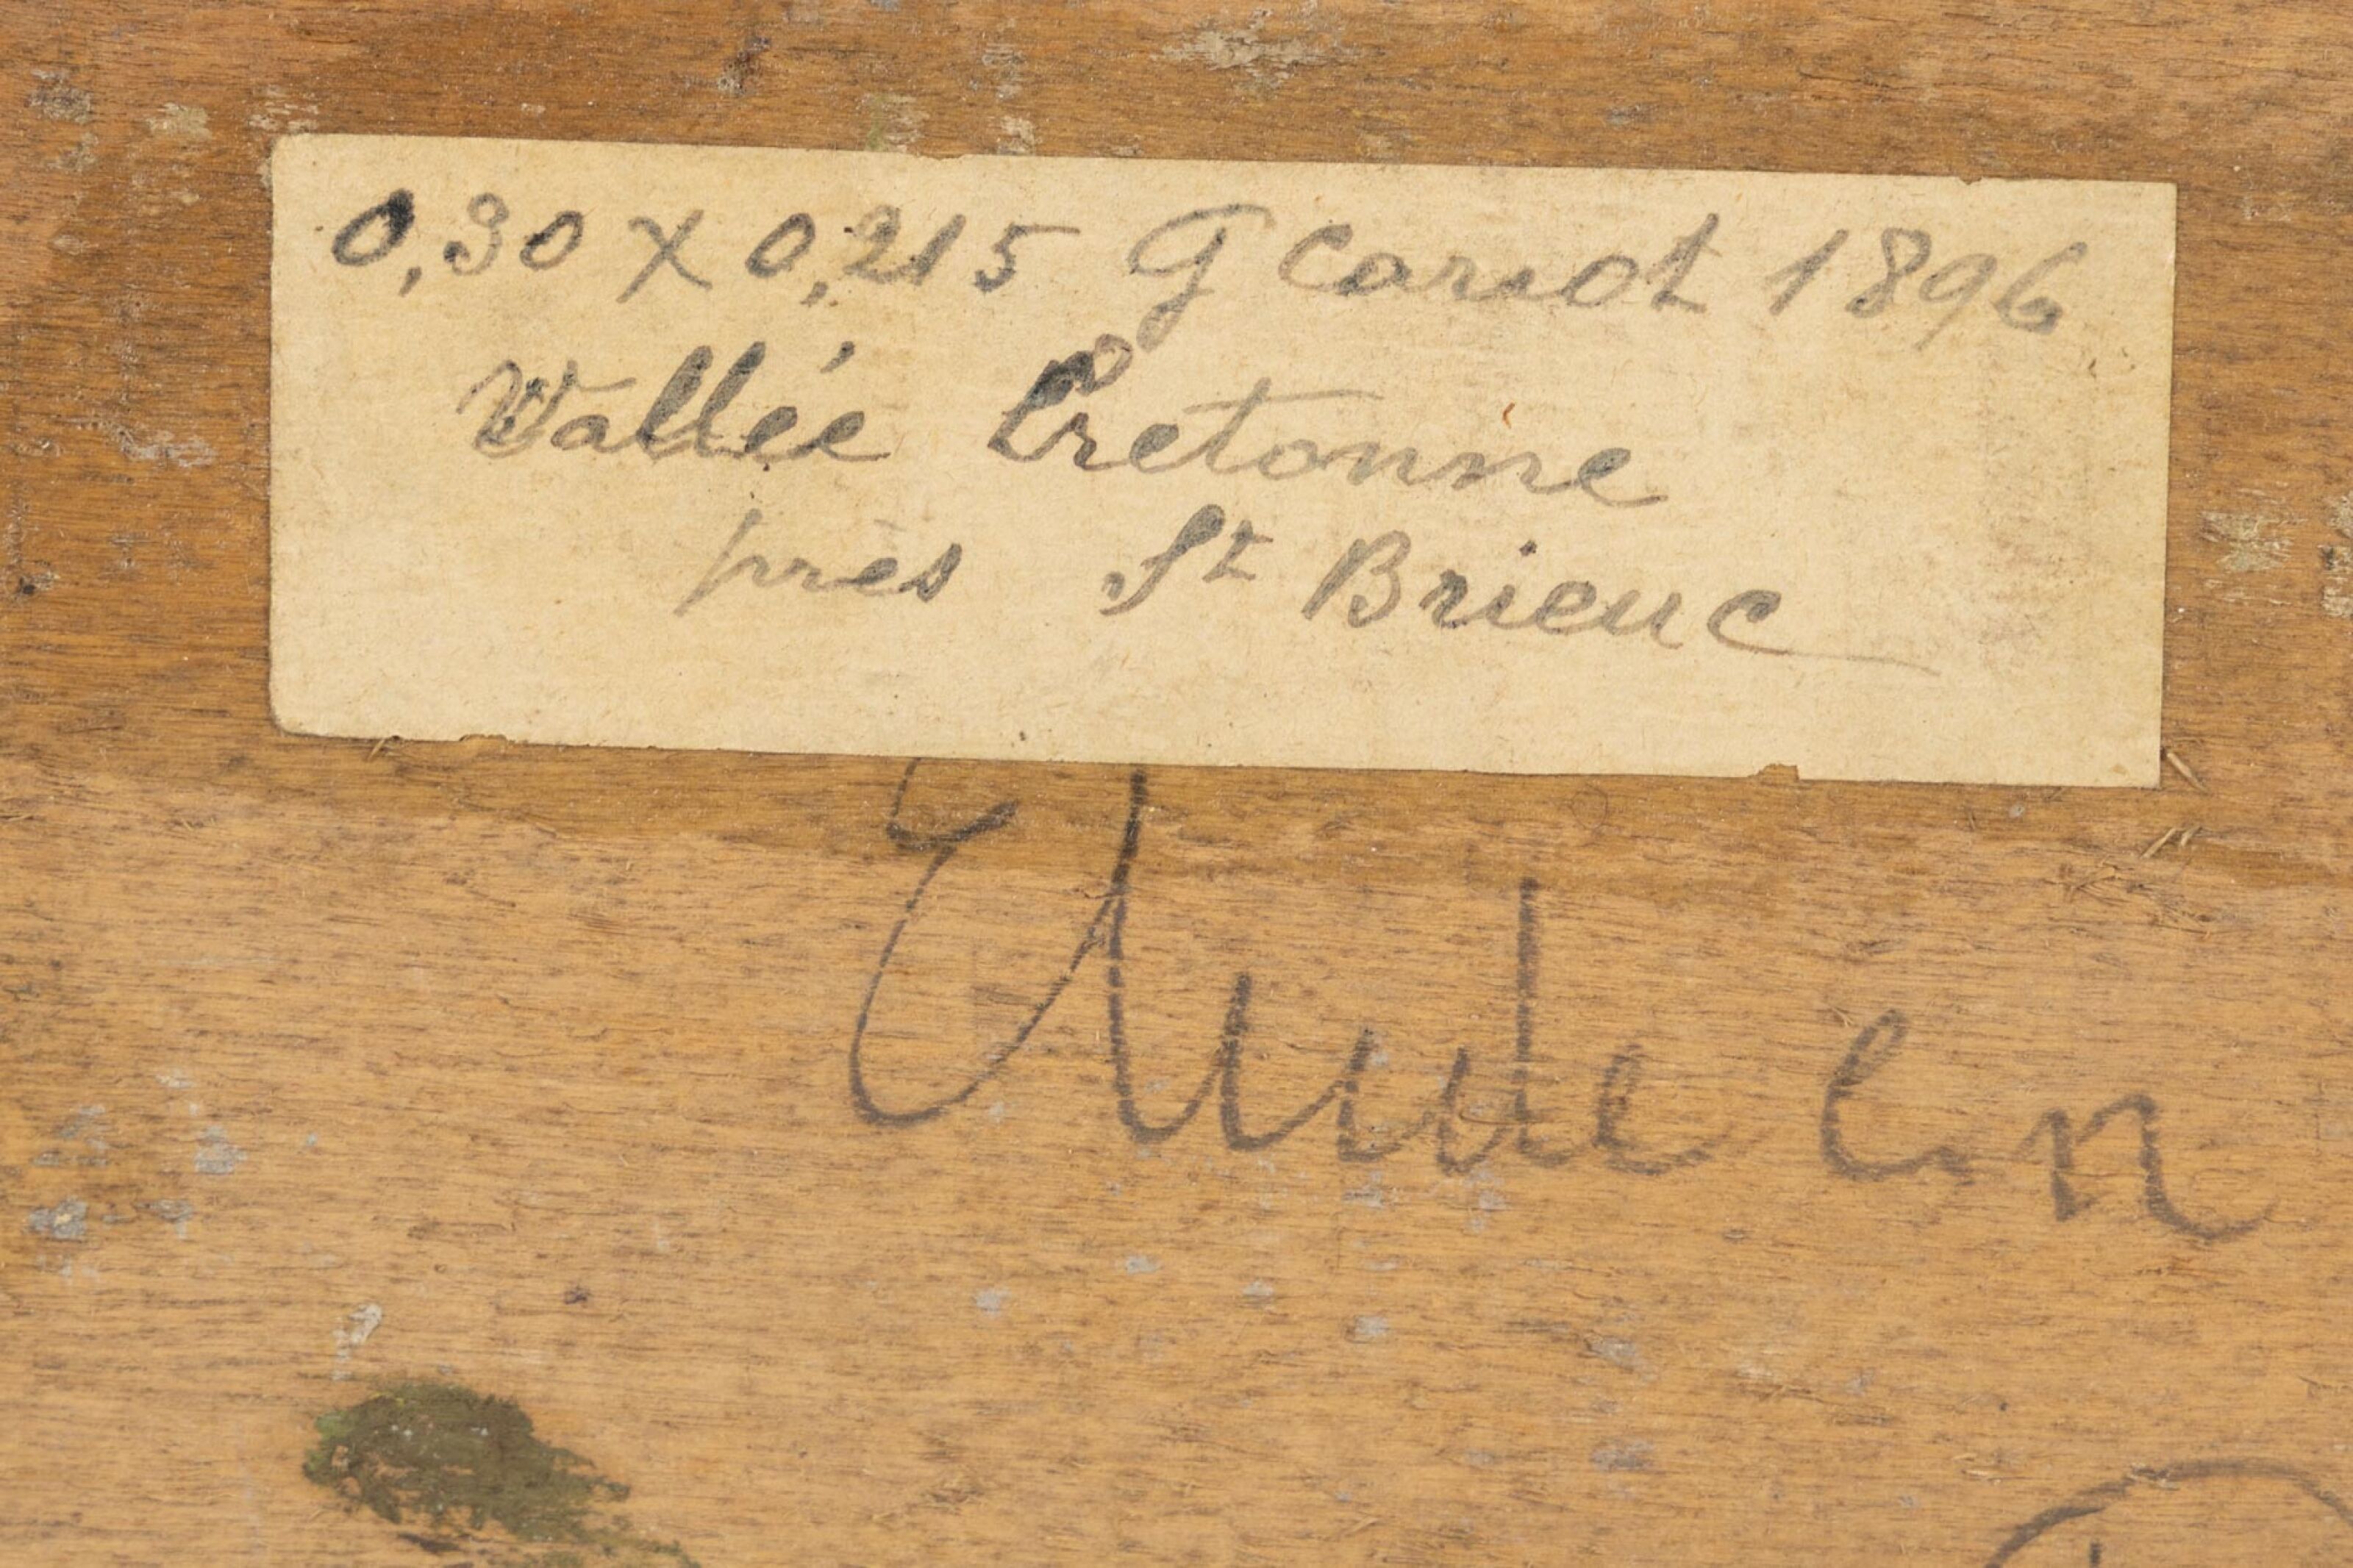 0,30 X 0,215 G Cariot 1896
Vallée Bretonne
près St Brieuc